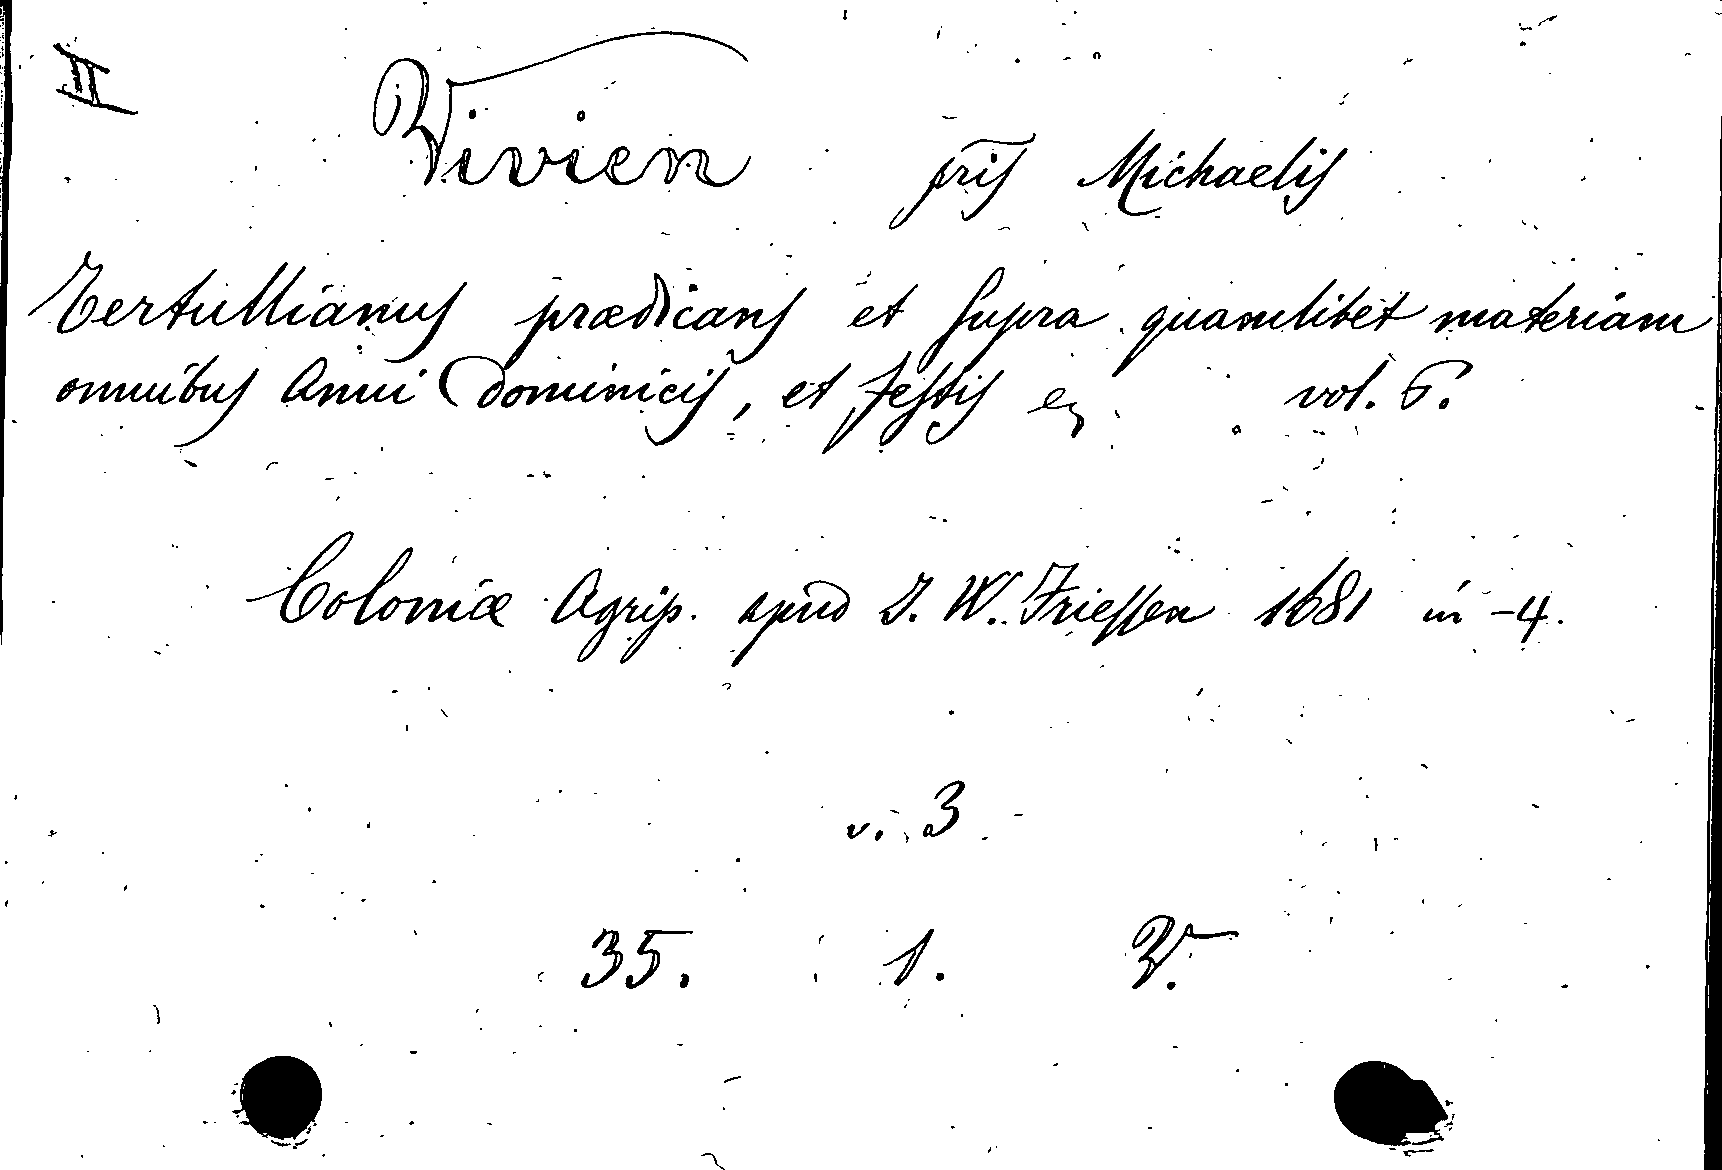 II
Vivien pris Michaelis
Tertullianus prædicans et supra quamlibet materiam
omnibus Anni dominicis, et festis ej vol. 6.
Coloniæ Agrip. apud J. W. Friessen 1681 in -4.
v. 3
35. 1. V.